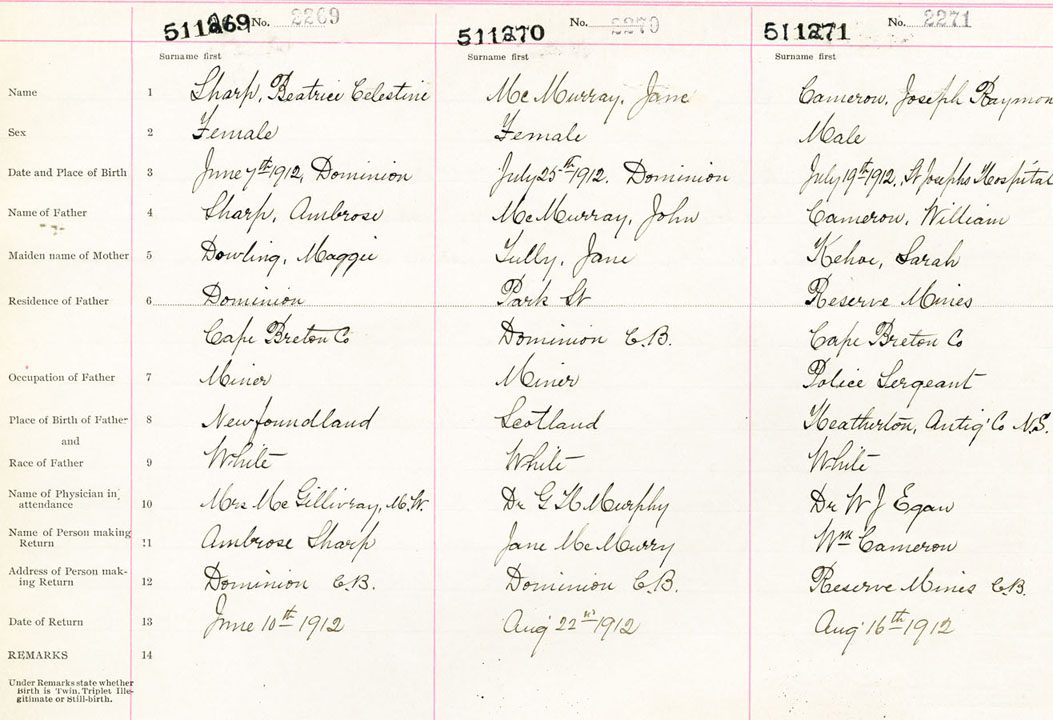 511269 No. 2269 511270 No. 2270 511271 No. 2271
Surname first Surname first Surname first
Name 1 Sharp, Beatrice Celestine McMurray, Jane Cameron, Joseph Raymon
Sex 2 Female Female Male
Date and Place of Birth 3 June 7th 1912, Dominion July 25th 1912. Dominion July 19th 1912, St Josephs Hospital
Name of Father 4 Sharp, Ambrose McMurray, John Cameron, William
Maiden name of Mother 5 Dowling, Maggie Tully, Jane Kehoe, Sarah
Residence of Father 6 Dominion Park St Reserve Mines
Cape Breton Co Dominion C.B. Cape Breton Co
Occupation of Father 7 Miner Miner Police Sergeant
Place of Birth of Father 8 Newfoundland Scotland Heatherton, Antig' Co N.S.
and
Race of Father 9 White White White
Name of Physician in
attendance 10 Mrs McGillivray, M.W. Dr G H Murphy Dr W J Egan
Name of Person making
Return 11 Ambrose Sharp Jane McMurry Wm Cameron
Address of Person mak-
ing Return 12 Dominion C.B. Dominion C.B. Reserve Mines C.B.
Date of Return 13 June 10th 1912 Aug 22nd 1912 Aug 16th 1912
REMARKS 14
Under Remarks state whether
Birth is Twin, Triplet Ille-
gitimate or Still-birth.